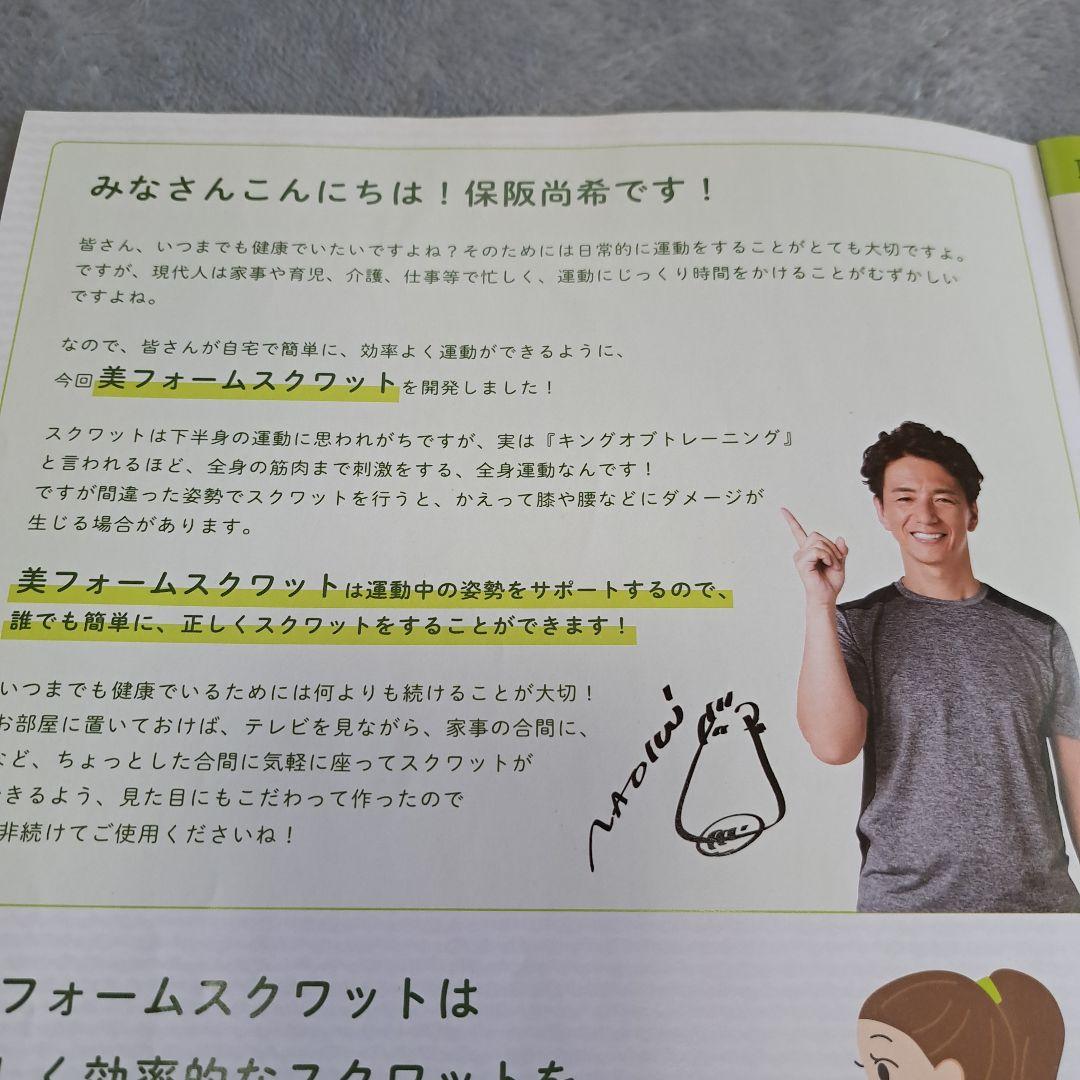 みなさんこんにちは！保阪尚希です！
皆さん、いつまでも健康でいたいですよね？そのためには日常的に運動をすることがとても大切ですよ。
ですが、現代人は家事や育児、介護、仕事等で忙しく、運動にじっくり時間をかけることがむずかしい
ですよね。
なので、皆さんが自宅で簡単に、効率よく運動ができるように、
今回美フォームスクワットを開発しました！
スクワットは下半身の運動に思われがちですが、実は『キングオブトレーニング』
と言われるほど、全身の筋肉まで刺激をする、全身運動なんです！
ですが間違った姿勢でスクワットを行うと、かえって膝や腰などにダメージが
生じる場合があります。
美フォームスクワットは運動中の姿勢をサポートするので、
誰でも簡単に、正しくスクワットをすることができます！
いつまでも健康でいるためには何よりも続けることが大切！
お部屋に置いておけば、テレビを見ながら、家事の合間に、
など、ちょっとした合間に気軽に座ってスクワットが
できるよう、見た目にもこだわって作ったので
非続けてご使用くださいね！
NAOKI
フォームスクワットは
しく効率的なスクワットを